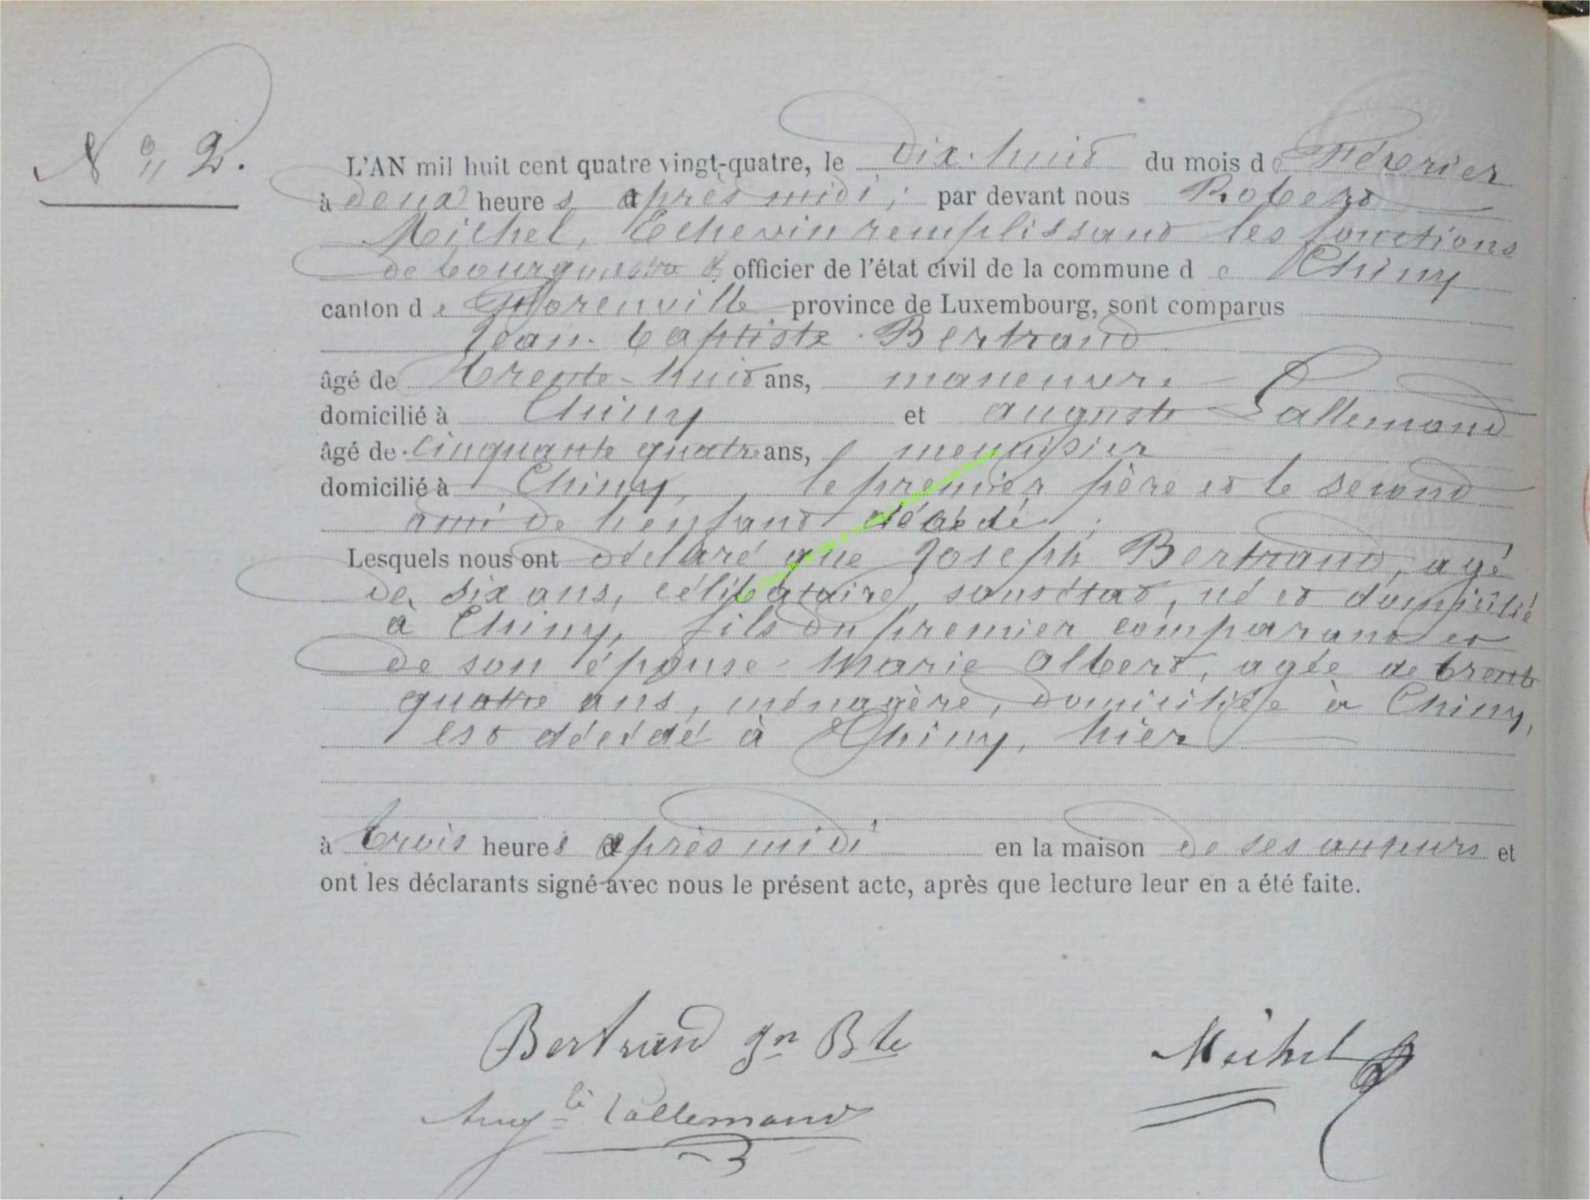 N° 2.
L'AN mil huit cent quatre vingt-quatre, le dix-huit du mois de Février
à deux heures après midi, par devant nous Robert
Michel, Echevin remplissant les fonctions
de bourgmestre & officier de l'état civil de la commune de Chiny
canton de Florenville province de Luxembourg, sont comparus
Jean-baptiste Bertrand
âgé de trente-huit ans, manœuvre
domicilié à Chiny et auguste Lallemand
âgé de cinquante quatre ans, menuisier
domicilié à Chiny, le premier père et le second
ami de l'enfant décédé,
Lesquels nous ont déclaré que Joseph Bertrand, agé
de six ans, célibataire, sans état, né et domicilié
à Chiny, fils du premier comparant et
de son épouse Marie Albert, agée de trente
quatre ans, ménagère, domiciliée à Chiny,
est décédé à Chiny, hier
à trois heures après midi en la maison de ses auteurs et
ont les déclarants signé avec nous le présent acte, après que lecture leur en a été faite.
Bertrand Jn Bte Michel
Augte Lallemand